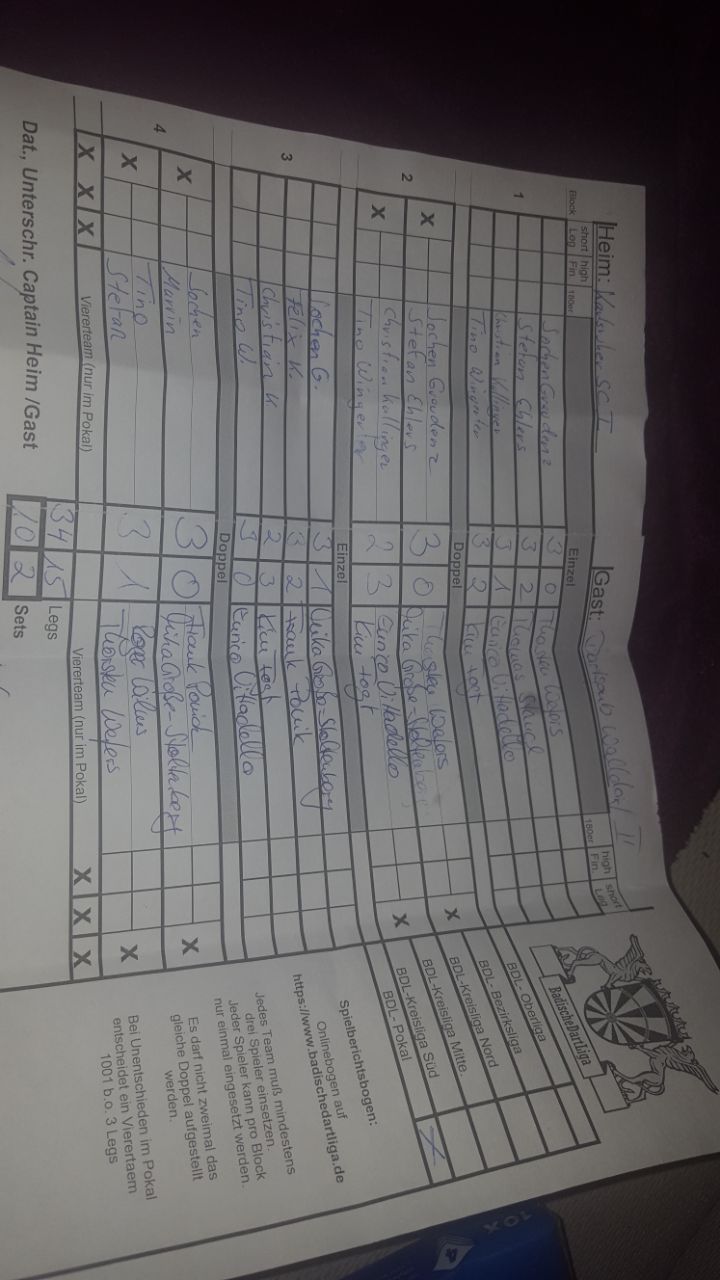 Heim: Karlsruher SC I Gast: Walldorf II
Block short Leg high Fin. 180er Einzel 180er high Fin. short Leg
1 Jochen Graudenz 3 0 Thorsten Wefers
Stefan Ehlers 3 2 Thomas
Christian Kullinger 3 1 Enrico Vittadello
Tino 3 2 Kim Fogt
Doppel
2 X Jochen Graudenz Stefan Ehlers 3 0 Thorsten Wefers X
X Christian Kullinger Tino 2 3 Enrico Vittadello Kim Fogt X
Einzel
3 Jochen G. 3 1
Felix K. 3 2 Frank
Christian K 2 3 Kim Fogt
Tino W. 3 0 Enrico Vittadello
Doppel
4 X Jochen Marvin 3 0 Frank X
X Tino Stefan 3 1 Thorsten Wefers X
X X X Viererteam (nur im Pokal) Viererteam (nur im Pokal) X X X
34 15 Legs
10 2 Sets
Dat., Unterschr. Captain Heim /Gast
BadischeDartLiga
BDL- Oberliga
BDL- Bezirksliga
BDL-Kreisliga Nord
BDL-Kreisliga Mitte.
BDL-Kreisliga Süd X
BDL- Pokal
Spielberichtsbogen:
Onlinebogen auf
https://www.badischedartliga.de
Jedes Team muß mindestens
drei Spieler einsetzen.
Jeder Spieler kann pro Block
nur einmal eingesetzt werden.
Es darf nicht zweimal das
gleiche Doppel aufgestellt
werden.
Bei Unentschieden im Pokal
entscheidet ein Vierertaem
1001 b.o. 3 Legs
10X